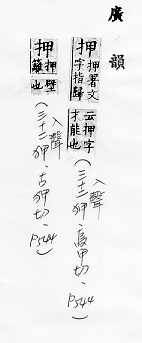 廣韻
押 押署文字指歸云押字才能也
(入聲 三十二狎、烏甲切、P.544)
押 押壁籬也
(入聲 三十二狎、古狎切、P.544)